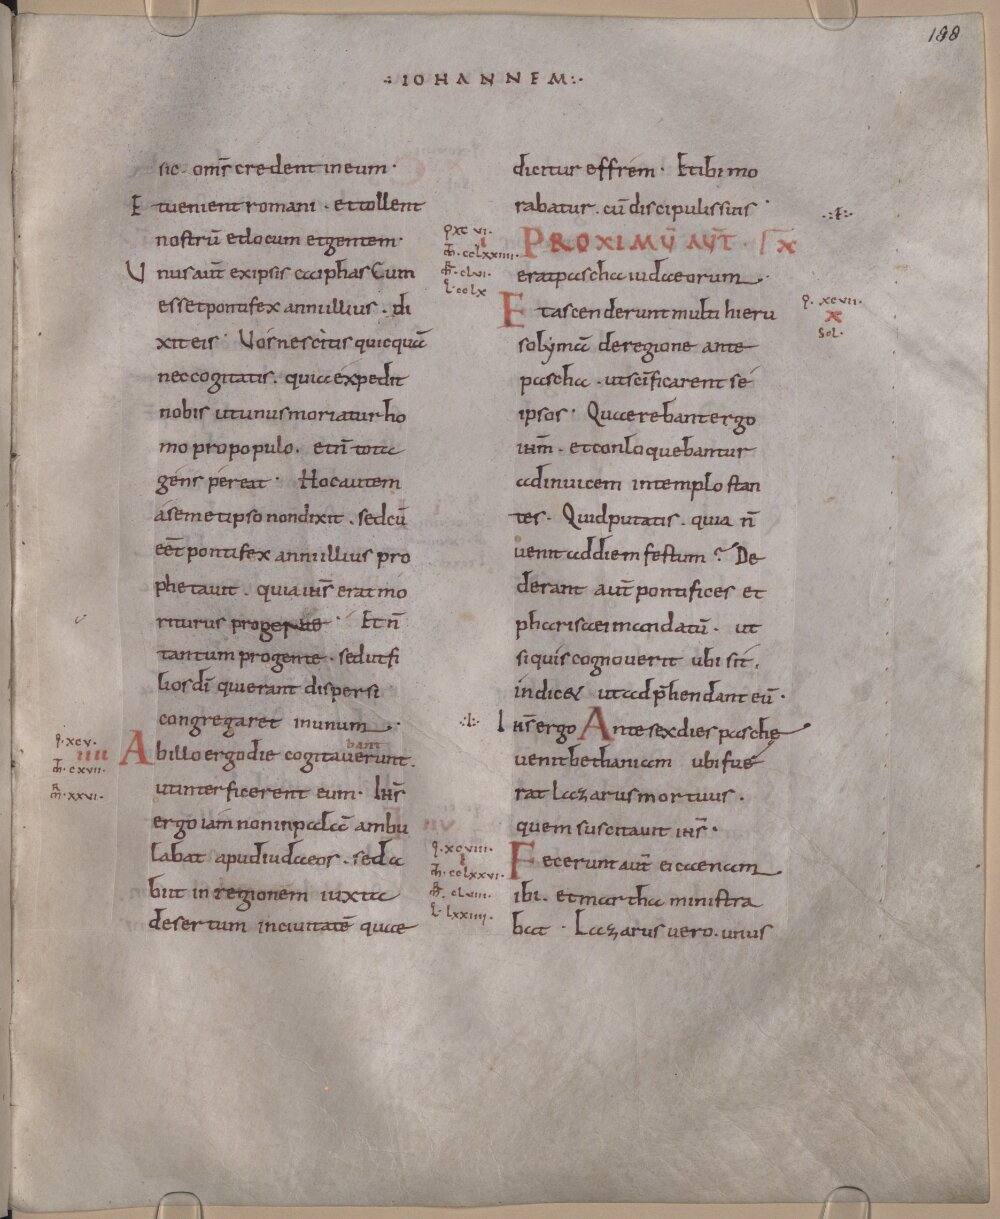 188
·:IOHANNEM:·
sic. om̅s credent in eum·
Et uenient romani. et tollent
nostrū et locum et gentem·
Unus aut̅ ex ipsis caiphas Cum
esset pontifex anni illius. di
xit eis· Uos nescitis quicquā
nec cogitatis. quia expedit
nobis ut unus moriatur ho
mo pro populo. et n̅ tota
gens pereat· Hoc autem
a semetipso non dixit. sed cū
eēt pontifex anni illius pro
phetauit. quia ih̅s erat mo
riturus pro gente· Et n̅
tantum pro gente. sed ut fi
lios dī qui erant dispersi
congregaret in unum·
q. xcv.
iiii
m̅. cxvii.
m̅. xxvi.
bant
Ab illo ergo die cogitauerunt.
ut interficerent eum· Ih̅s
ergo iam non in palā ambu
labat apud iudaeos. sed a
biit in regionem iuxta
desertum in ciuitatē quae
dicitur effrem· Et ibi mo
rabatur. cū discipulis suis·
q. xcvi
i
m̅. cclxxiiii.
m̅. clvi.
l. cclx
PROXIMŪ AUT̅· x
erat pascha iudaeorum·
q. xcvii.
x
sol.
Et ascenderunt multi hieru
solymā de regione ante
pascha. ut sc̅ificarent se
ipsos· Quaerebant ergo
ih̅m. et conloquebantur
ad inuicem in templo stan
tes. Quid putatis. quia n̅
uenit ad diem festum? De
derant aut̅ pontifices et
pharisaei mandatū. ut
si quis cognouerit ubi sit.
indicet ut adp̅hendant eū·
·:I:·
Ih̅s ergo Ante sex dies paschę
uenit bethaniam ubi fue
rat lazarus mortuus.
quem suscitauit ih̅s·
q. xcviii.
i
m̅. cclxxvi.
m̅. clviii.
l. lxxiiii.
Fecerunt aut̅ ei caenam
ibi. et martha ministra
bat· Lazarus uero. unus